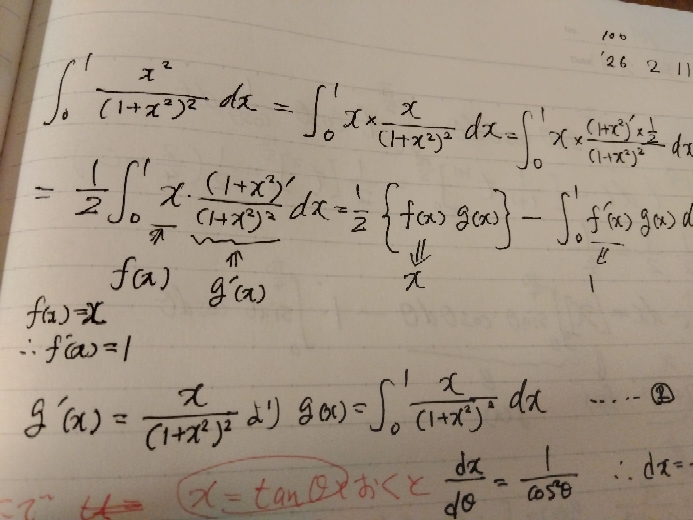 100
'26 2 11
∫₀¹ x²/(1+x²)² dx = ∫₀¹ x × x/(1+x²)² dx = ∫₀¹ x × (1+x²)' × 1/2 /(1+x²)² dx
= 1/2 ∫₀¹ x · (1+x²)'/(1+x²)² dx = 1/2 {f(x) g(x)} - ∫₀¹ f'(x) g(x) d
f(x) g'(x) x 1
f(x) = x
∴ f'(x) = 1
g'(x) = x/(1+x²)² より g(x) = ∫₀¹ x/(1+x²)² dx ...... ②
x = tanθ とおくと dx/dθ = 1/cos²θ ∴ dx =